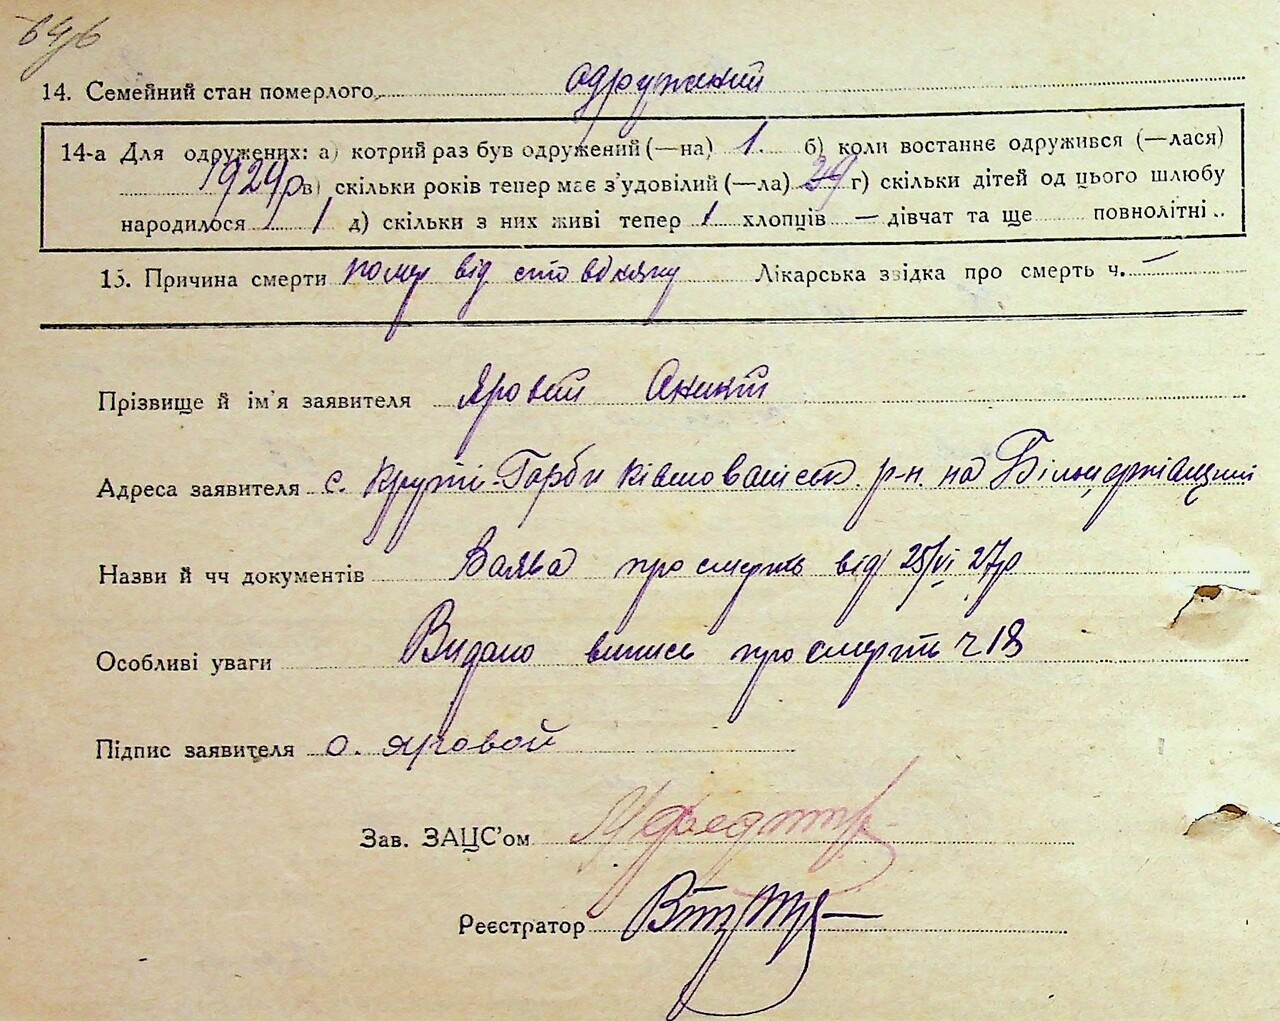 14. Семейний стан померлого одружений
14-а Для одружених: а) котрий раз був одружений (—на) 1. б) коли востаннє одружився (—лася)
1924р в) скільки років тепер має з'удовілий (—ла) г) скільки дітей од цього шлюбу
народилося 1 д) скільки з них живі тепер 1 хлопців — дівчат та ще повнолітні..
15. Причина смерти помер від Лікарська звідка про смерть ч. —
Прізвище й ім'я заявителя Яровий
Адреса заявителя с. Круті-Горби р-н. на
Назви й чч документів Заява про смерть від 25/VI 27р
Особливі уваги Видано випись про смерть ч 18
Підпис заявителя О. Яровой
Зав. ЗАЦС'ом
Реєстратор